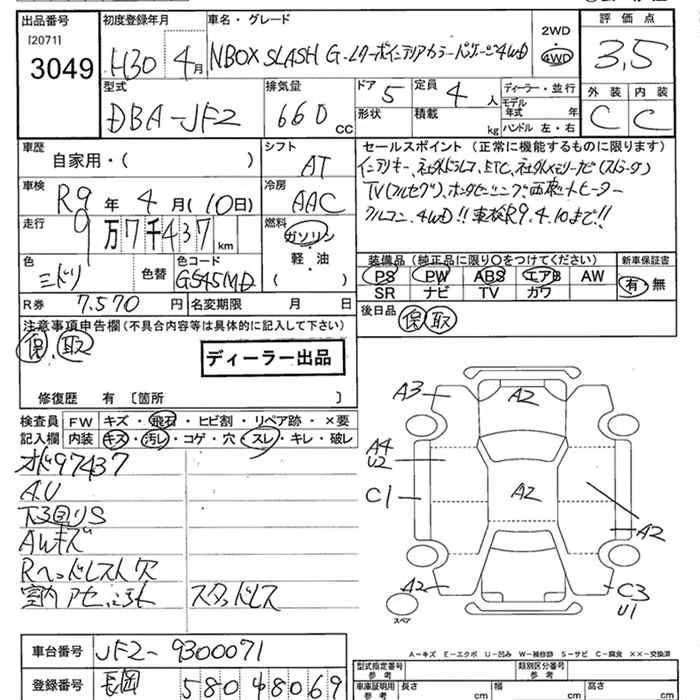 出品番号 初度登録年月 車名・グレード 2WD 評価点
[2071] 3049 H30年4月 NBOX SLASH G・Lターボインテリアカラーパッケージ4WD 4WD 3.5
型式 DBA-JF2 排気量 660 cc ドア 5 形状 定員 4人 積載 kg ディーラー・並行 モデル年式 年式 ハンドル 左・右 外装 C 内装 C
車歴 自家用・( ) シフト AT
車検 R9年4月(10日) 冷房 AAC
走行 9万7千437km 燃料 ガソリン・軽・油 ( )
色 ミドリ 色替 色コード G545MD
R券 7.570円 名変期限 月 日
セールスポイント(正常に機能するものに限ります)
インテリキー、社外ドラレコ、ETC、社外メモリーナビ(ストラーダ)
TV(フルセグ)、ホンダセンシング、両席シートヒーター
クルコン、4WD!!車検R9.4.10まで!!
装備品(純正品に限り○をつけてください) 新車保証書
PS PW ABS エアB AW 有・無
SR ナビ TV カワ
後日品 保 取
注意事項申告欄(不具合内容等は具体的に記入して下さい)
保、取
ディーラー出品
修復歴 有〔箇所 〕
検査員 FW キズ・飛石・ヒビ割・リペア跡・×要
記入欄 内装 キズ・汚レ・コゲ・穴・スレ・キレ・破レ
オド97437
A.U
下回りS
AWキズ
Rヘッドレスト欠
室内アセ、
スタッドレス
A3 A2
A4
U2
C1 A2 A2
A2 C3
U1
スペア
A-キズ E-エクボ U-凹み W-補修跡 S-サビ C-腐食 ××-交換済
車台番号 JF2-9300071
登録番号 長岡 580 48069
型式指定番号 参考 類別区分番号 参考
車庫証明用 参考 長さ cm 幅 cm 高さ cm